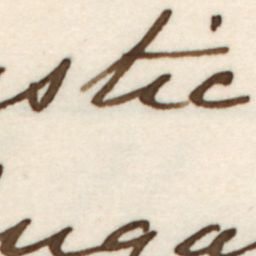 stic
uga